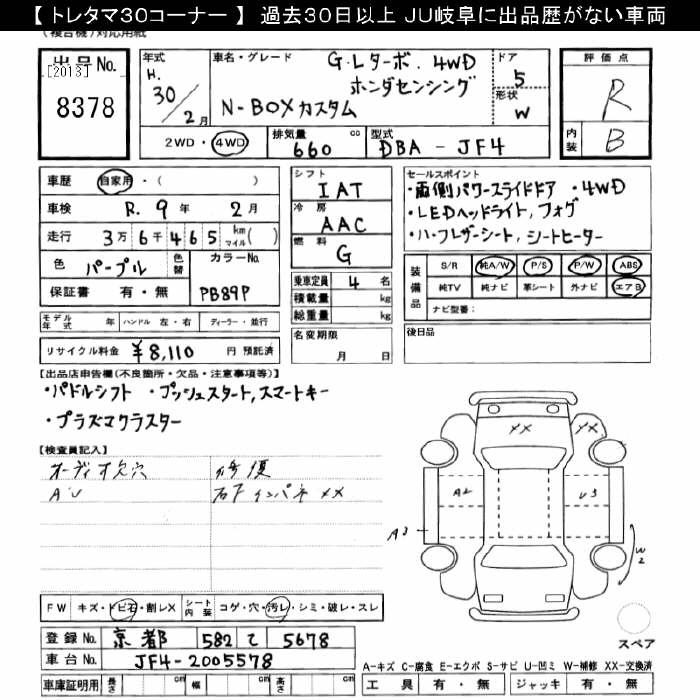 【 トレタマ30コーナー 】 過去30日以上 JU岐阜に出品歴がない車両
(複合機)対応用紙
出品No. [2013] 8378
年式 H. 30 / 2月
車名・グレード G・Lターボ. 4WD ホンダセンシング
N-BOXカスタム
ドア 5
形状 W
評価点 R
内装 B
2WD・4WD
排気量 660 cc
型式 DBA - JF4
車歴 自家用・( )
車検 R. 9年 2月
走行 3万6千465 km マイル ( )
色 パープル 色替
カラーNo. PB89P
保証書 有・無
シフト IAT
冷房 AAC
燃料 G
乗車定員 4 名
積載量 kg
総重量 kg
セールスポイント
・両側パワースライドドア ・4WD
・LEDヘッドライト, フォグ
・ハーフレザーシート, シートヒーター
装備品 S/R 純A/W P/S P/W ABS
純TV 純ナビ 革シート 外ナビ エアB
ナビ型番:
モデル年式 年 ハンドル 左・右 ディーラー・並行
リサイクル料金 ¥8,110 円 預託済
名変期限 月 日
後日品
【出品店申告欄(不良箇所・欠品・注意事項等)】
・パドルシフト ・プッシュスタート, スマートキー
・プラズマクラスター
【検査員記入】
オーディオ欠穴 修復
石下インパネ XX
XX XX
A2 U3
A3 W2
FW キズ・トビ石・割レX シート内装 コゲ・穴・汚レ・シミ・破レ・スレ
登録No. 京都 582 て 5678
車台No. JF4-2005578
車庫証明用 長さ cm 幅 cm 高さ cm
スペア
A-キズ C-腐食 E-エクボ S-サビ U-凹ミ W-補修 XX-交換済
工具 有・無 ジャッキ 有・無